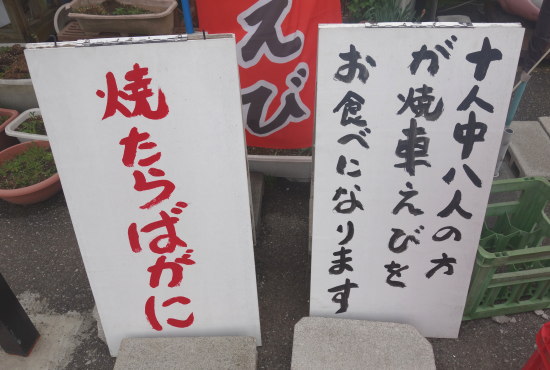 焼たらばがに
えび
十人中八人の方
が焼車えびを
お食べになります